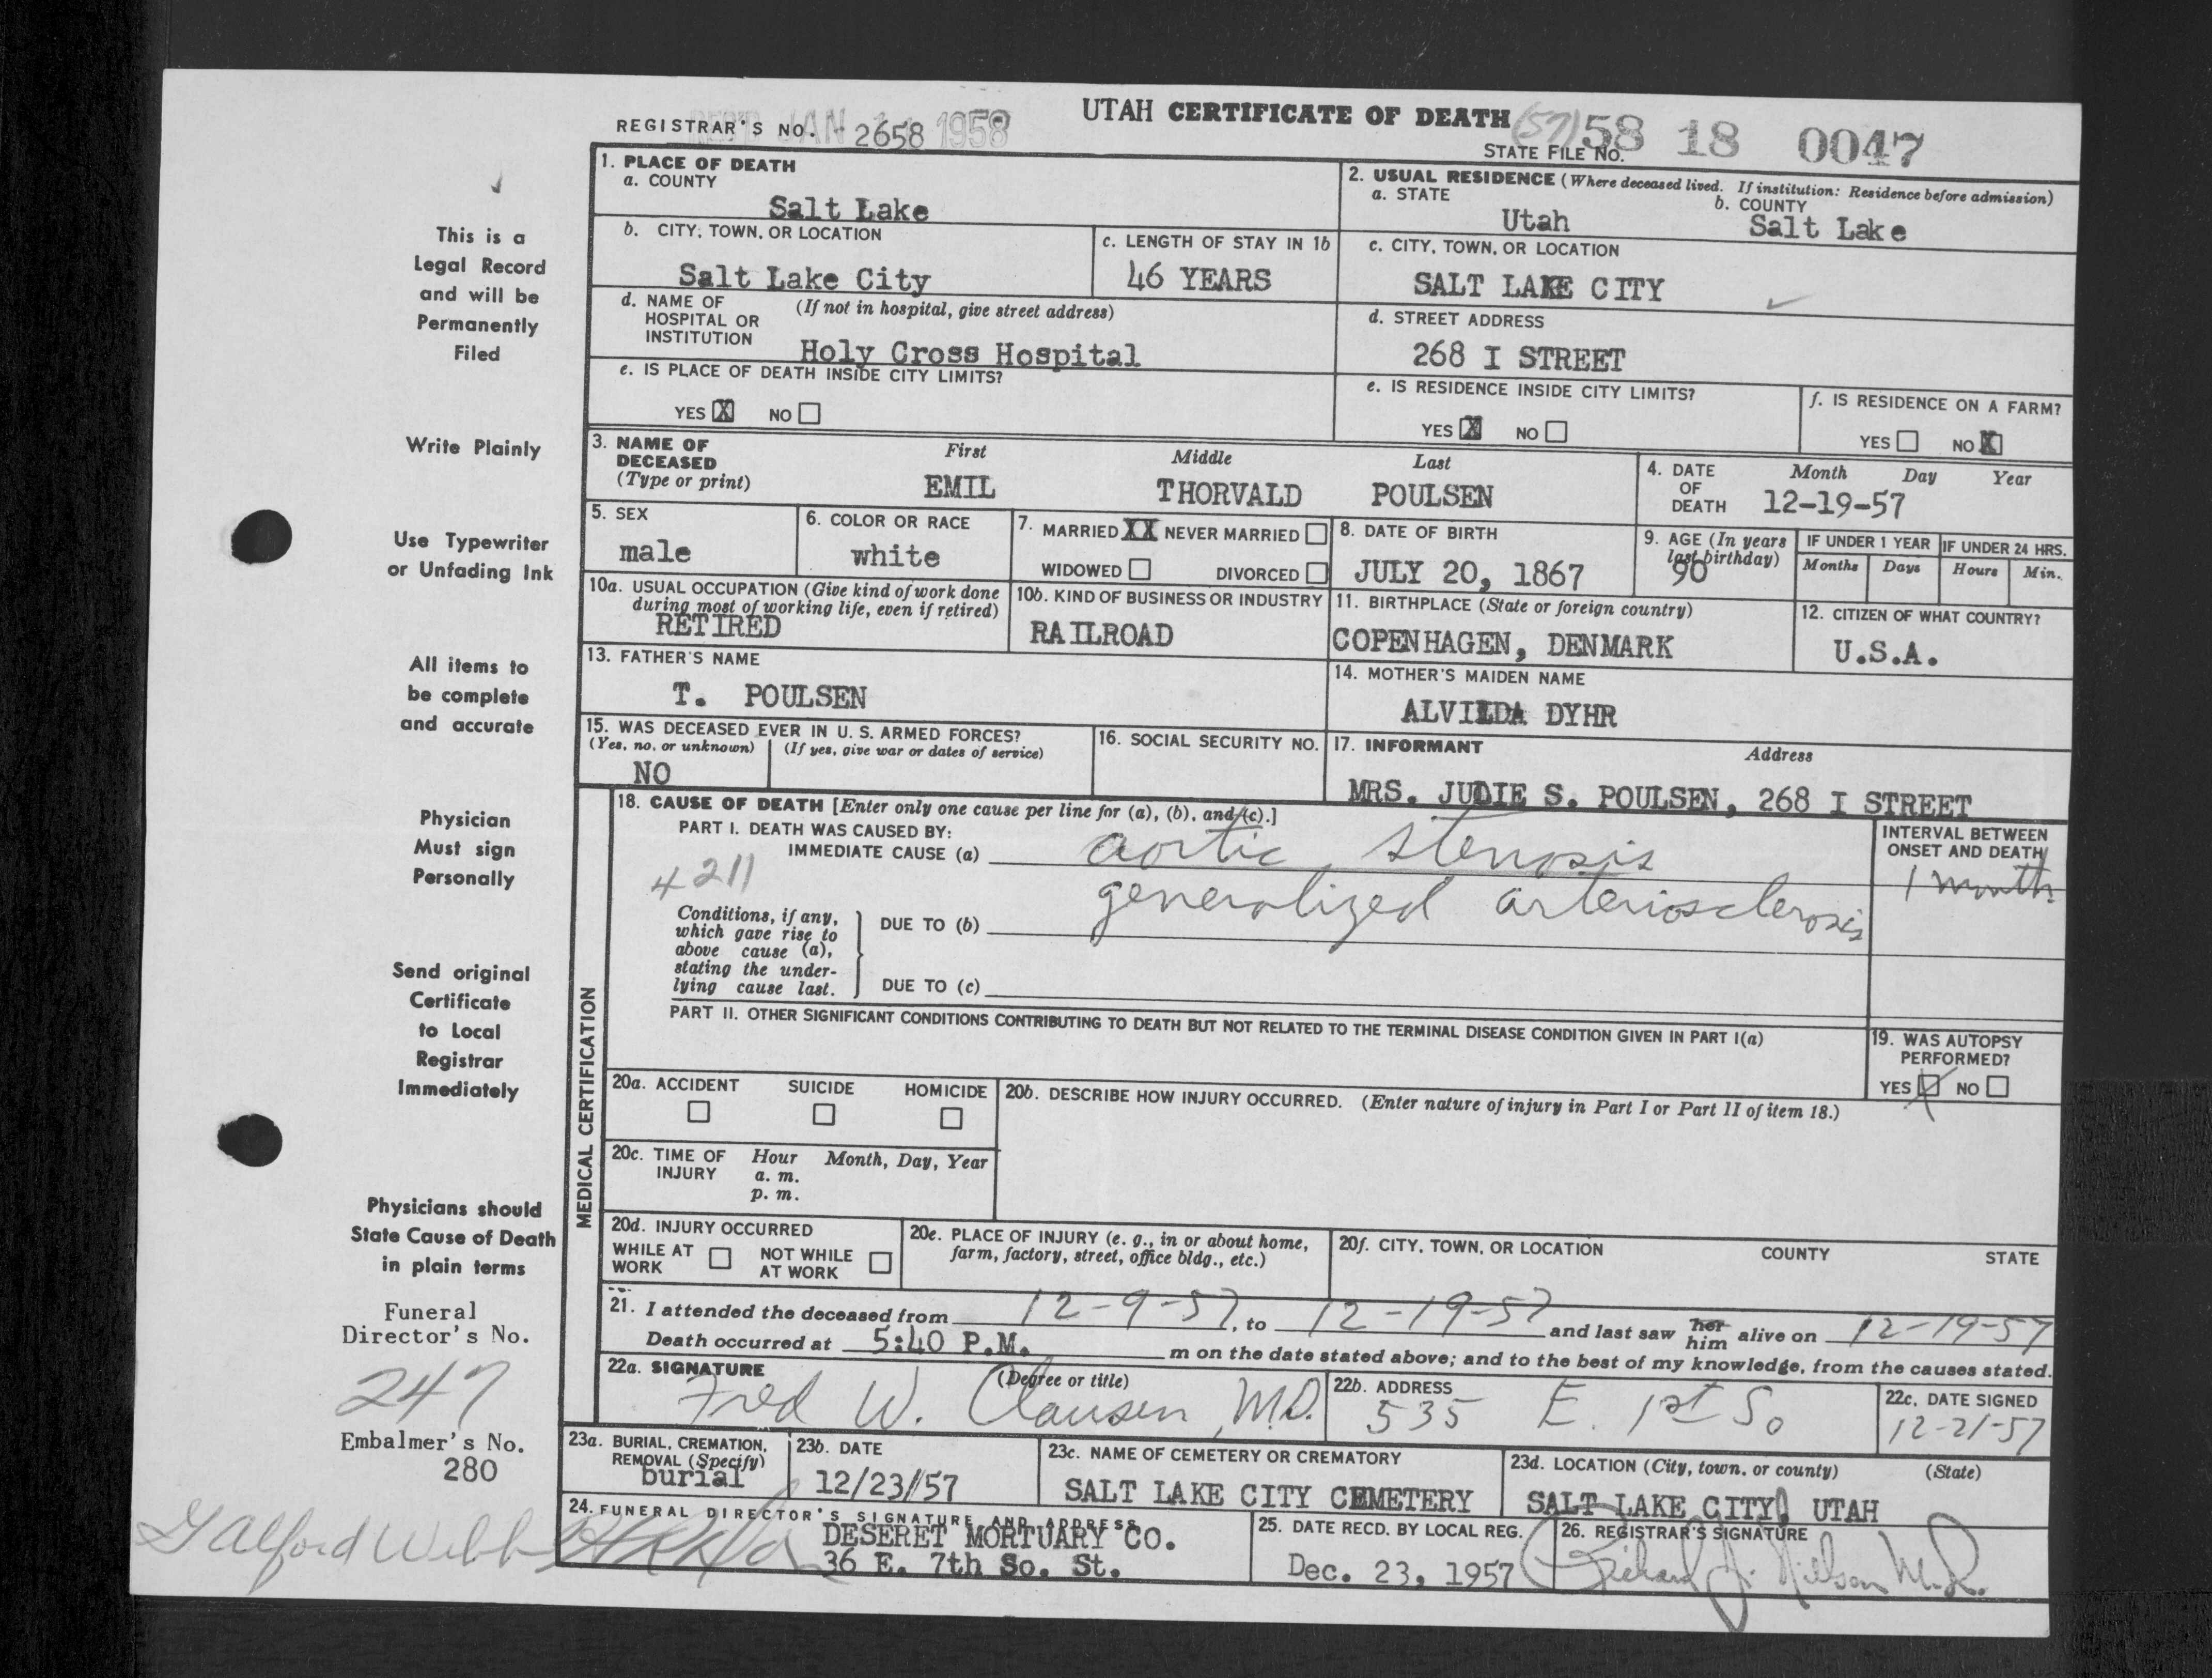 UTAH CERTIFICATE OF DEATH
REGISTRAR'S NO. 2658 JAN 1958
STATE FILE NO. (57) 58 18 0047
This is a
Legal Record
and will be
Permanently
Filed
Write Plainly
Use Typewriter
or Unfading Ink
All items to
be complete
and accurate
Physician
Must sign
Personally
Send original
Certificate
to Local
Registrar
Immediately
Physicians should
State Cause of Death
in plain terms
Funeral
Director's No.
247
Embalmer's No.
280
1. PLACE OF DEATH
a. COUNTY
Salt Lake
2. USUAL RESIDENCE (Where deceased lived. If institution: Residence before admission)
a. STATE
Utah
b. COUNTY
Salt Lake
b. CITY, TOWN, OR LOCATION
Salt Lake City
c. LENGTH OF STAY IN 1b
46 YEARS
c. CITY, TOWN, OR LOCATION
SALT LAKE CITY
d. NAME OF (If not in hospital, give street address)
HOSPITAL OR
INSTITUTION
Holy Cross Hospital
d. STREET ADDRESS
268 I STREET
e. IS PLACE OF DEATH INSIDE CITY LIMITS?
YES X NO
e. IS RESIDENCE INSIDE CITY LIMITS?
YES X NO
f. IS RESIDENCE ON A FARM?
YES NO X
3. NAME OF
DECEASED
(Type or print)
First Middle Last
EMIL THORVALD POULSEN
4. DATE
OF
DEATH
Month Day Year
12-19-57
5. SEX
male
6. COLOR OR RACE
white
7. MARRIED XX NEVER MARRIED
WIDOWED DIVORCED
8. DATE OF BIRTH
JULY 20, 1867
9. AGE (In years
last birthday)
90
IF UNDER 1 YEAR
Months Days
IF UNDER 24 HRS.
Hours Min.
10a. USUAL OCCUPATION (Give kind of work done
during most of working life, even if retired)
RETIRED
10b. KIND OF BUSINESS OR INDUSTRY
RAILROAD
11. BIRTHPLACE (State or foreign country)
COPENHAGEN, DENMARK
12. CITIZEN OF WHAT COUNTRY?
U.S.A.
13. FATHER'S NAME
T. POULSEN
14. MOTHER'S MAIDEN NAME
ALVILDA DYHR
15. WAS DECEASED EVER IN U. S. ARMED FORCES?
(Yes, no, or unknown) (If yes, give war or dates of service)
NO
16. SOCIAL SECURITY NO.
17. INFORMANT Address
MRS. JUDIE S. POULSEN, 268 I STREET
MEDICAL CERTIFICATION
18. CAUSE OF DEATH [Enter only one cause per line for (a), (b), and (c).]
PART I. DEATH WAS CAUSED BY:
IMMEDIATE CAUSE (a) aortic stenosis
4211
INTERVAL BETWEEN
ONSET AND DEATH
1 month
Conditions, if any,
which gave rise to
above cause (a),
stating the under-
lying cause last.
DUE TO (b) generalized arteriosclerosis
DUE TO (c)
PART II. OTHER SIGNIFICANT CONDITIONS CONTRIBUTING TO DEATH BUT NOT RELATED TO THE TERMINAL DISEASE CONDITION GIVEN IN PART I(a)
19. WAS AUTOPSY
PERFORMED?
YES X NO
20a. ACCIDENT SUICIDE HOMICIDE
20b. DESCRIBE HOW INJURY OCCURRED. (Enter nature of injury in Part I or Part II of item 18.)
20c. TIME OF
INJURY
Hour Month, Day, Year
a. m.
p. m.
20d. INJURY OCCURRED
WHILE AT
WORK
NOT WHILE
AT WORK
20e. PLACE OF INJURY (e. g., in or about home,
farm, factory, street, office bldg., etc.)
20f. CITY, TOWN, OR LOCATION COUNTY STATE
21. I attended the deceased from 12-9-57, to 12-19-57 and last saw her him alive on 12-19-57
Death occurred at 5:40 P.M. m on the date stated above; and to the best of my knowledge, from the causes stated.
22a. SIGNATURE (Degree or title)
Fred W. Clausen, M.D.
22b. ADDRESS
535 E. 1st So
22c. DATE SIGNED
12-21-57
23a. BURIAL, CREMATION,
REMOVAL (Specify)
burial
23b. DATE
12/23/57
23c. NAME OF CEMETERY OR CREMATORY
SALT LAKE CITY CEMETERY
23d. LOCATION (City, town, or county) (State)
SALT LAKE CITY, UTAH
24. FUNERAL DIRECTOR'S SIGNATURE AND ADDRESS
DESERET MORTUARY CO.
36 E. 7th So. St.
Galford Webb
25. DATE RECD. BY LOCAL REG.
Dec. 23, 1957
26. REGISTRAR'S SIGNATURE
Richard J. Nilson M.D.